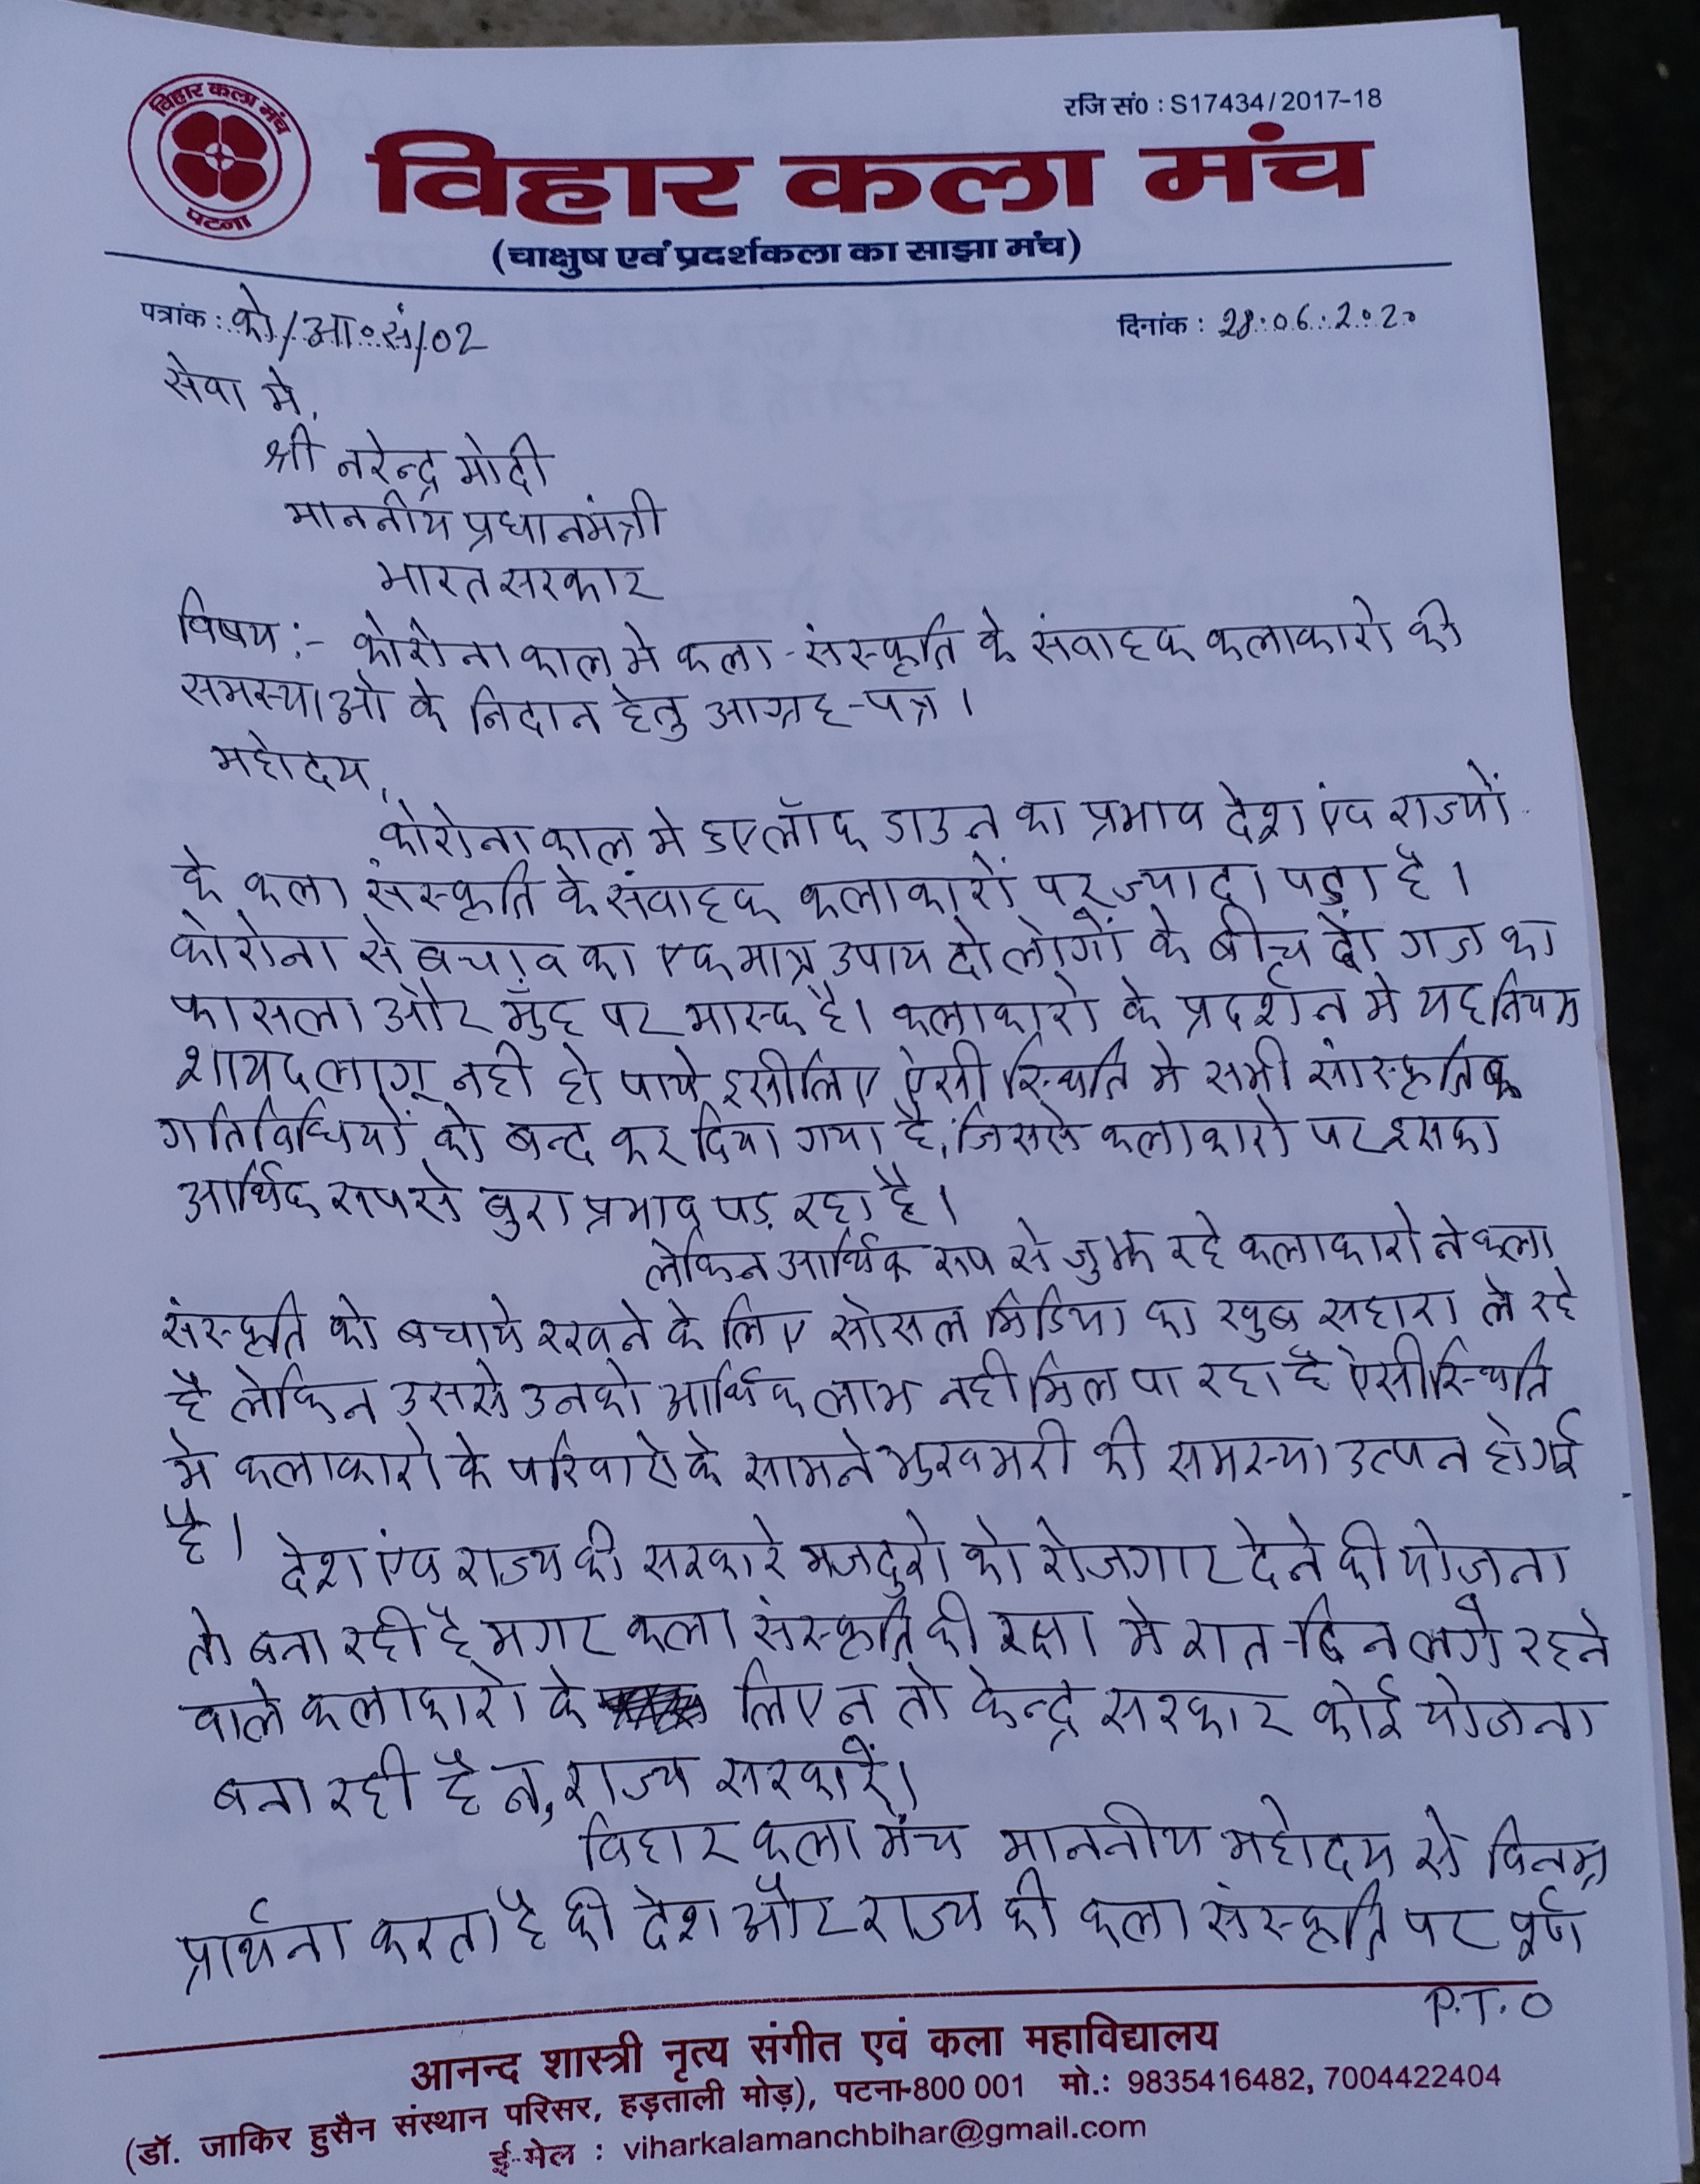 विहार कला मंच
पटना
रजि सं० : S17434/2017-18
विहार कला मंच
(चाक्षुष एवं प्रदर्शकला का साझा मंच)
पत्रांक : को/आ०सं/02
दिनांक : 28.06.2020
सेवा मे,
श्री नरेन्द्र मोदी
माननीय प्रधानमंत्री
भारत सरकार
विषय :- कोरोना काल मे कला-संस्कृति के संवाहक कलाकारो की
समस्याओ के निदान हेतु आग्रह-पत्र ।
महोदय,
कोरोना काल मे हुए लॉक डाउन का प्रभाव देश एंव राज्यों
के कला संस्कृति के संवाहक कलाकारों पर ज्यादा पड़ा है ।
कोरोना से बचाव का एक मात्र उपाय दो लोगों के बीच दो गज का
फासला और मुँह पर मास्क है। कलाकारो के प्रदर्शन मे यह नियम
शायद लागू नही हो पाये इसीलिए ऐसी स्थिति मे सभी सांस्कृतिक
गतिविधियों को बन्द कर दिया गया है, जिससे कलाकारो पर इसका
आर्थिक रूप से बुरा प्रभाव पड़ रहा है ।
लेकिन आर्थिक रूप से जुझ रहे कलाकारो ने कला
संस्कृति को बचाये रखने के लिए सोसल मिडिया का खुब सहारा ले रहे
है लेकिन उससे उनको आर्थिक लाभ नही मिल पा रहा है ऐसी स्थिति
मे कलाकारो के परिवारो के सामने भुखमरी की समस्या उत्पन हो गई
है ।
देश एंव राज्य की सरकारे मजदुरो को रोजगार देने की योजना
तो बना रही है मगर कला संस्कृति की रक्षा मे रात-दिन लगे रहने
वाले कलाकारो के लिए न तो केन्द्र सरकार कोई योजना
बना रही है न, राज्य सरकारें।
विहार कला मंच माननीय महोदय से विनम्र
प्रार्थना करता है की देश और राज्य की कला संस्कृति पर पूर्ण
P.T.O
आनन्द शास्त्री नृत्य संगीत एवं कला महाविद्यालय
(डॉ. जाकिर हुसैन संस्थान परिसर, हड़ताली मोड़), पटना-800 001 मो.: 9835416482, 7004422404
ई-मेल : viharkalamanchbihar@gmail.com